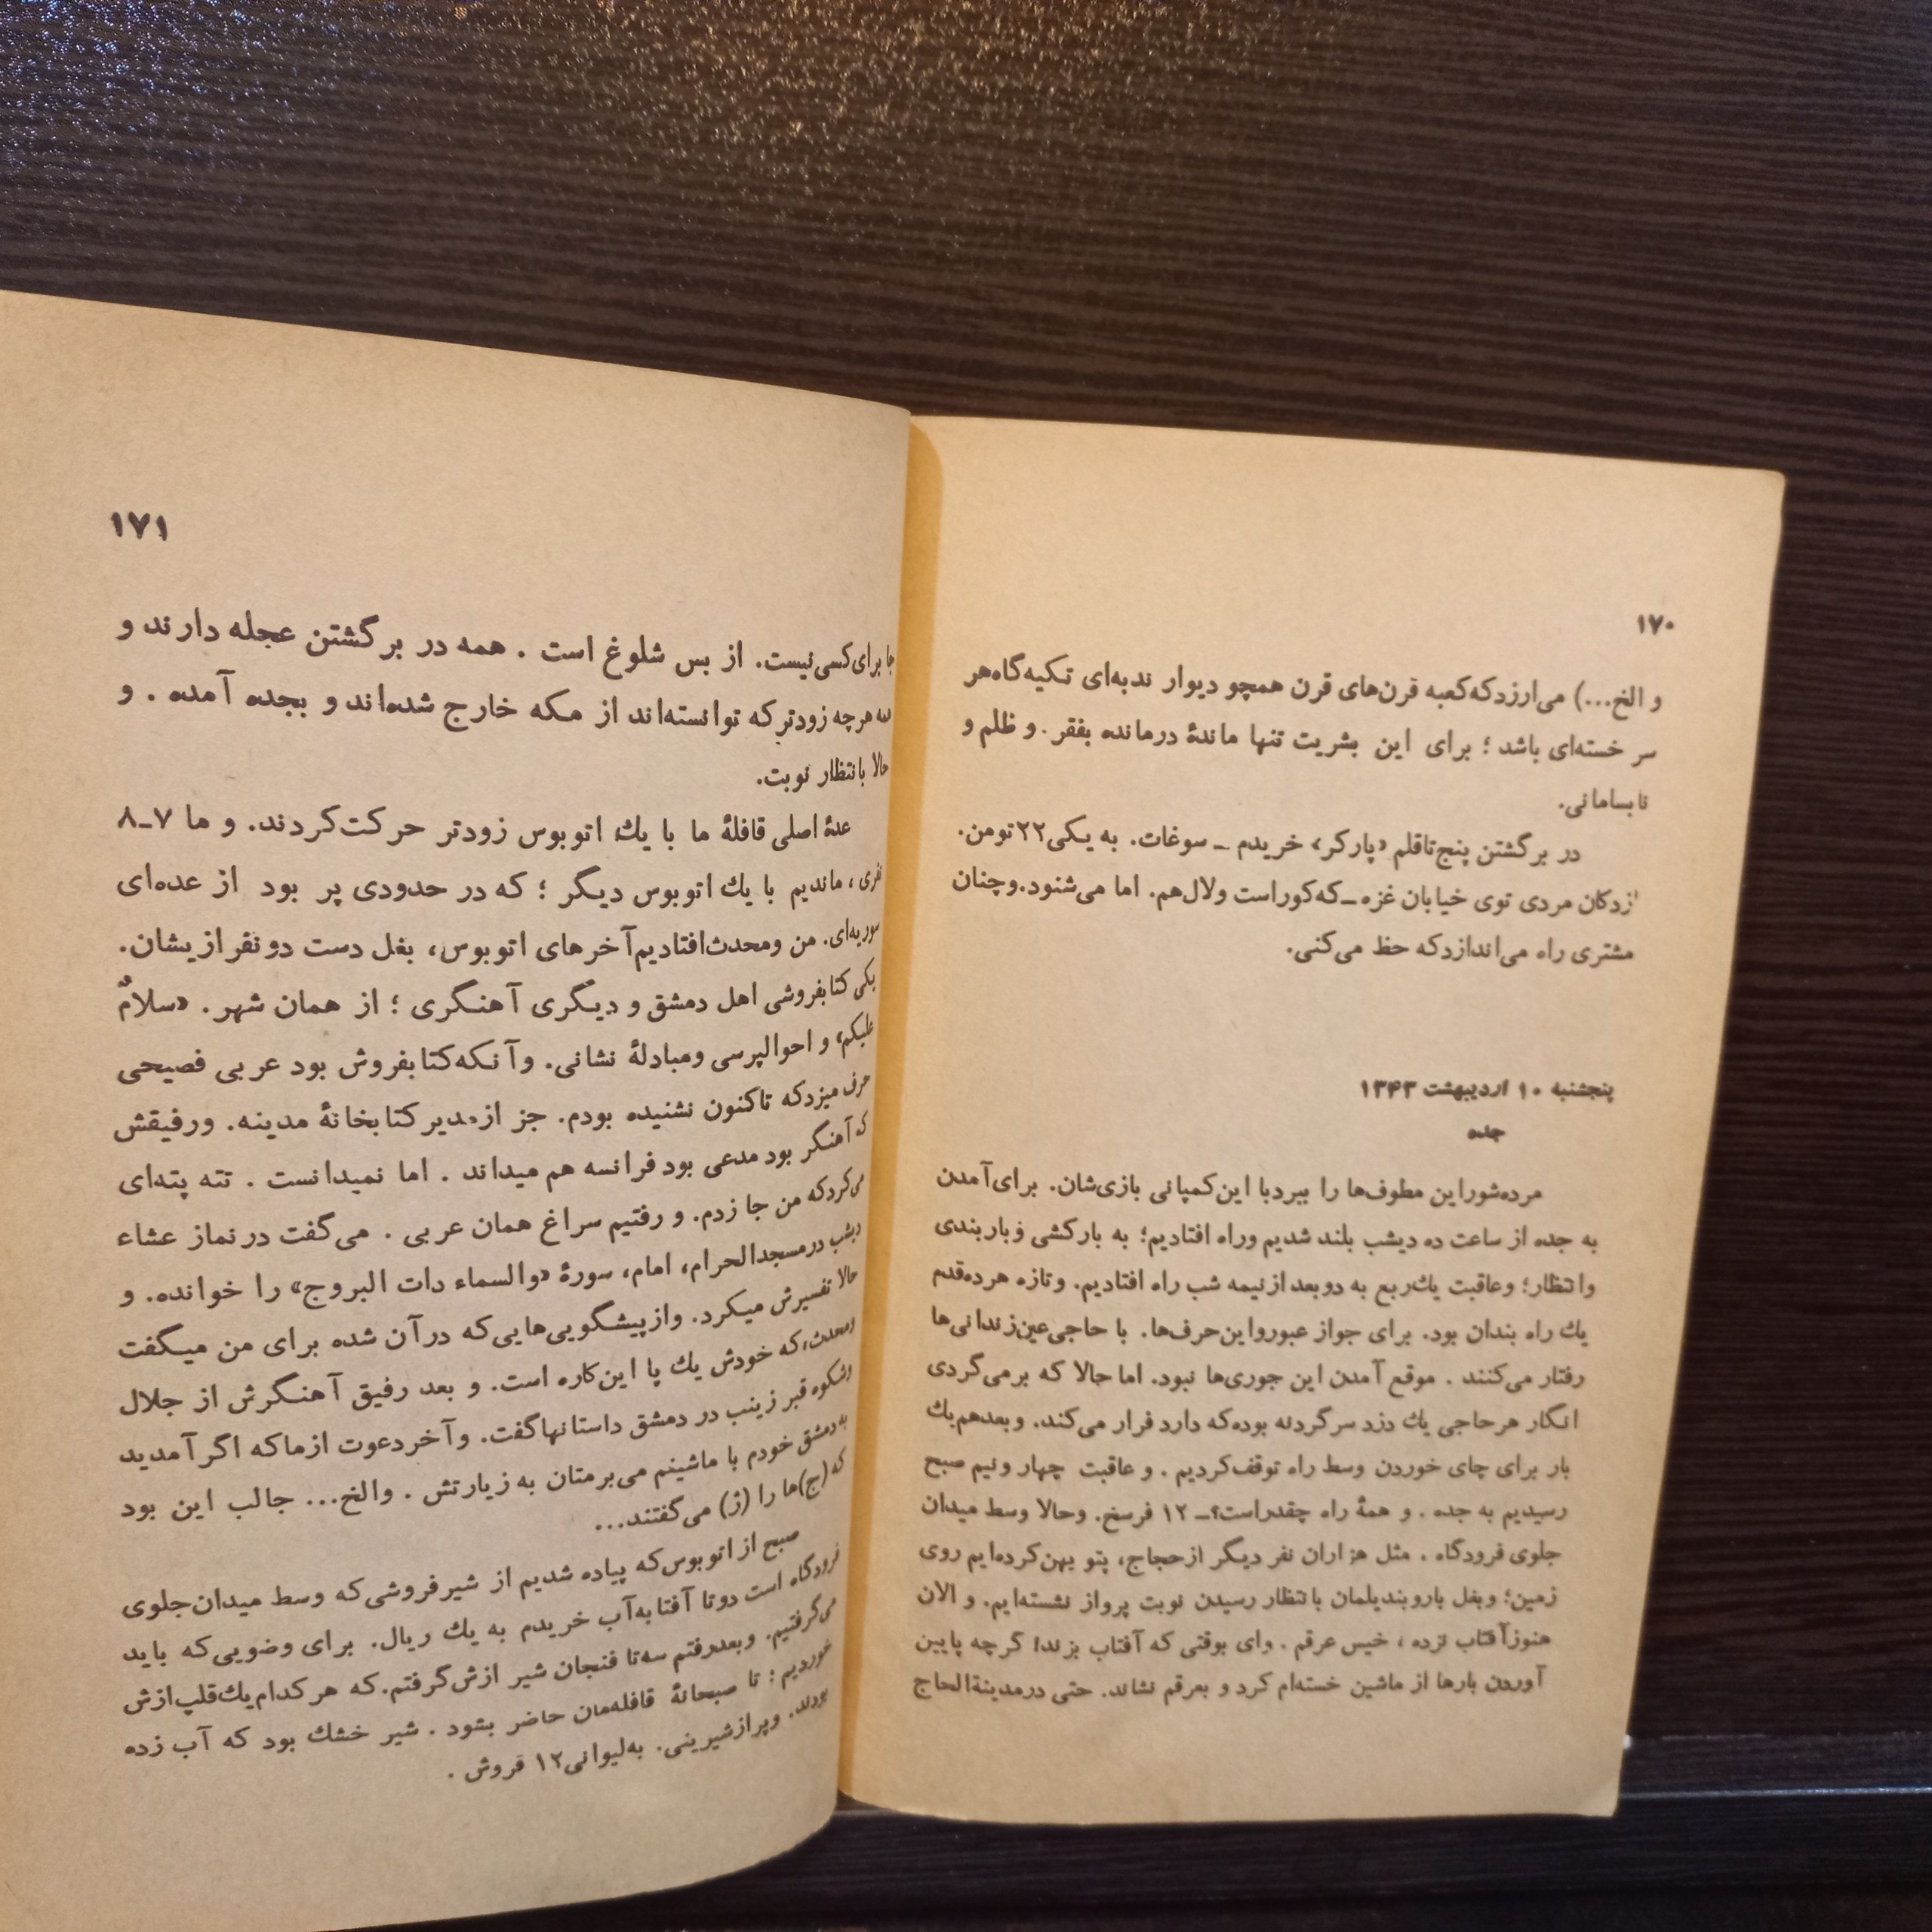 ۱۷۰
و الخ...) می‌ارزد که کعبه قرن‌های قرن همچو دیوار ندبه‌ای تکیه‌گاه هر
سر خسته‌ای باشد ؛ برای این بشریت تنها ماندهٔ درمانده بفقر . و ظلم و
نابسامانی.
در برگشتن پنج‌تا قلم «پارکر» خریدم ـ سوغات. به یکی ۲۲ تومن.
ازدکان مردی توی خیابان غزه ـ که کور است ولال هم. اما می‌شنود. و چنان
مشتری راه می‌اندازد که حظ می‌کنی.
پنجشنبه ۱۰ اردیبهشت ۱۳۴۳
جده
مرده‌شور این مطوف‌ها را ببرد با این کمپانی بازی‌شان. برای آمدن
به جده از ساعت ده دیشب بلند شدیم وراه افتادیم؛ به بارکشی و باربندی
وانتظار؛ وعاقبت یك ربع به دو بعد از نیمه شب راه افتادیم. وتازه هرده‌قدم
یك راه بندان بود. برای جواز عبور و این حرف‌ها. با حاجی عین زندانی‌ها
رفتار می‌کنند . موقع آمدن این جوری‌ها نبود. اما حالا که برمی‌گردی
انگار هر حاجی یك دزد سرگردنه بوده که دارد فرار می‌کند. وبعدهم یك
بار برای چای خوردن وسط راه توقف کردیم . و عاقبت چهار ونیم صبح
رسیدیم به جده . و همهٔ راه چقدر است؟ـ ۱۲ فرسخ. وحالا وسط میدان
جلوی فرودگاه . مثل هزاران نفر دیگر از حجاج، پتو پهن کرده‌ایم روی
زمین؛ وبغل باروبندیلمان بانتظار رسیدن نوبت پرواز نشسته‌ایم. و الان
هنوز آفتاب نزده ، خیس عرقم . وای بوقتی که آفتاب بزند! گرچه پایین
آوردن بارها از ماشین خسته‌ام کرد و بعرقم نشاند. حتی در مدینة‌الحاج
۱۷۱
جا برای کسی نیست. از بس شلوغ است . همه در برگشتن عجله دارند و
همه هرچه زودتر که توانسته‌اند از مکه خارج شده‌اند و بجده آمده . و
حالا بانتظار نوبت.
عدهٔ اصلی قافلهٔ ما با یك اتوبوس زودتر حرکت کردند. و ما ۷ـ۸
نفری ، ماندیم با یك اتوبوس دیگر ؛ که در حدودی پر بود از عده‌ای
سوریه‌ای. من ومحدث افتادیم آخرهای اتوبوس، بغل دست دونفر ازیشان.
یکی کتابفروشی اهل دمشق و دیگری آهنگری ؛ از همان شهر. «سلامٌ
علیکم» و احوالپرسی ومبادلهٔ نشانی. وآنکه کتابفروش بود عربی فصیحی
حرف میزد که تاکنون نشنیده بودم. جز از مدیر کتابخانهٔ مدینه. ورفیقش
که آهنگر بود مدعی بود فرانسه هم میداند . اما نمیدانست . تته پته‌ای
می‌کرد که من جا زدم. و رفتیم سراغ همان عربی . می‌گفت در نماز عشاء
دیشب درمسجدالحرام، امام، سورهٔ «والسماء دات البروج» را خوانده. و
حالا تفسیرش میکرد. واز پیشگویی‌هایی که درآن شده برای من میگفت
ومحدث، که خودش یك پا این‌کاره است. و بعد رفیق آهنگرش از جلال
وشکوه قبر زینب در دمشق داستانها گفت. وآخر دعوت ازما که اگر آمدید
به دمشق خودم با ماشینم می‌برمتان به زیارتش . والخ... جالب این بود
که (ج)ها را (ژ) می‌گفتند...
صبح از اتوبوس که پیاده شدیم از شیرفروشی که وسط میدان جلوی
فرودگاه است دوتا آفتابه آب خریدم به یك ریال. برای وضویی که باید
می‌گرفتیم. وبعد رفتم سه‌تا فنجان شیر ازش گرفتم. که هرکدام یك قلپ ازش
خوردیم ؛ تا صبحانهٔ قافله‌مان حاضر بشود . شیر خشك بود که آب زده
بودند. و پر از شیرینی. به لیوانی ۱۲ قروش .